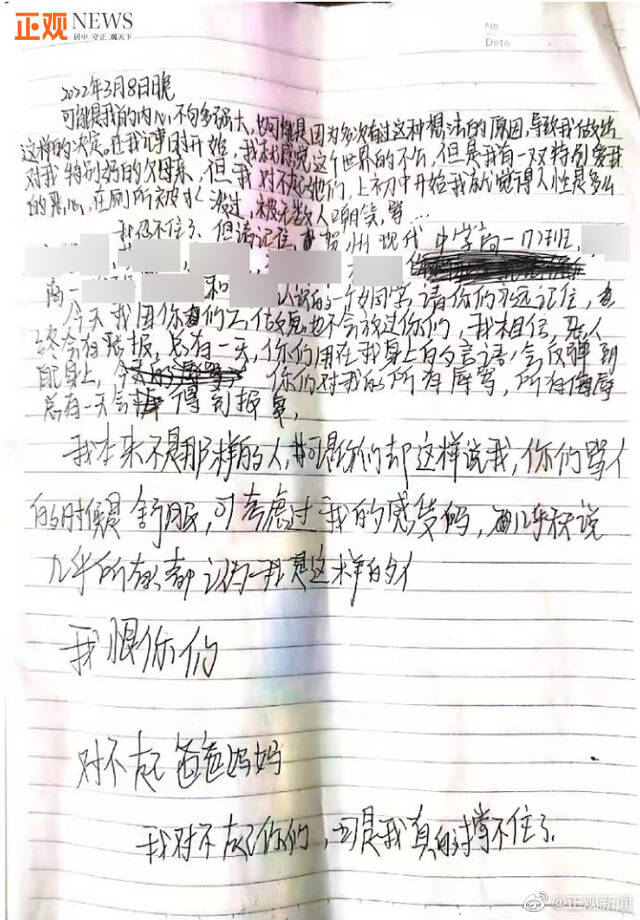 正观NEWS
居中 守正 观天下
No
Date
2022年3月8日晚
可能是我的内心不够多强大,也可能是因为多次有过这种想法的原因,导致我做出
这样的决定。在我记事时开始,我就感觉这个世界的不公,但是我有一双特别爱我
对我特别好的父母亲,但我对不起他们,上初中开始我就觉得人性是多么
的恶心,在厕所被 过,被无数人嘲笑,骂...
我忍不住了,但请记住, 州现代中学高一17班,
高一 和 认识的一个女同学,请你们永远记住,
今天我因你们 也不会放过你们,我相信,恶人
终会有恶报,总有一天,你们用在我身上的言语,会反弹到
自己身上, 你们对我的所有辱骂,所有侮辱
总有一天会得到报复,
我本来不是那样的人,可是你们却这样说我,你们骂人
的时候是舒服,可考虑过我的感受吗, 几乎 说
几乎所有 都认为我是这样的人
我恨你们
对不起爸爸妈妈
我对不起你们,可是我真的撑不住了.
@正观新闻